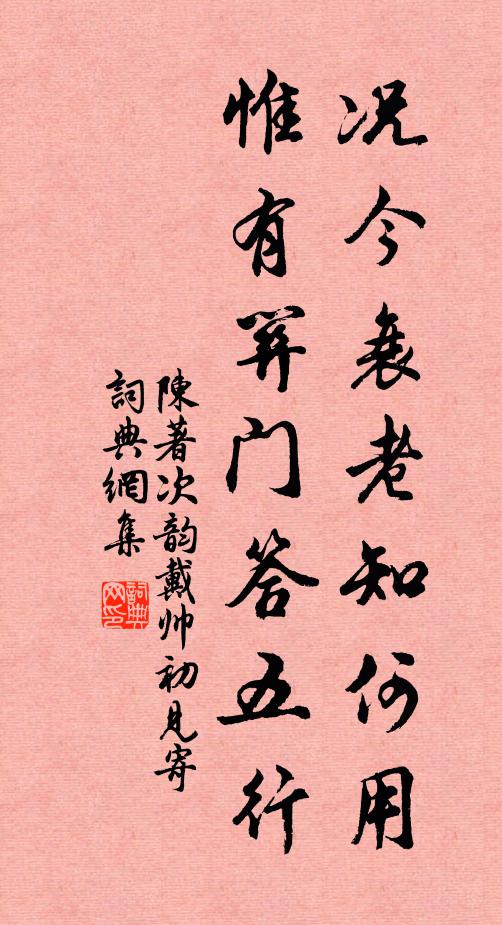 况今衰老知何用
惟有門答五行
陳著次韵戴帅初見寄
詞典網集
詞典网印